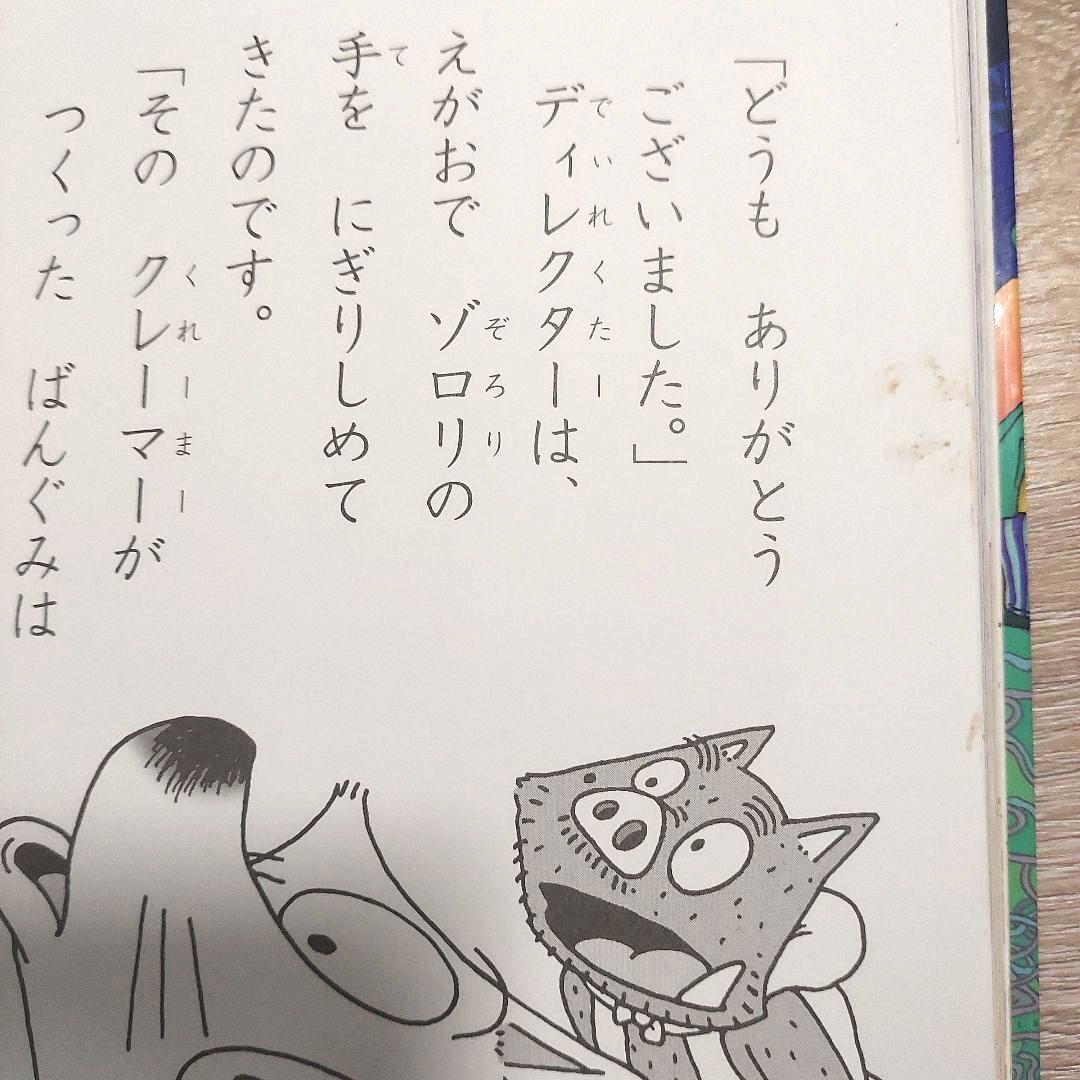 「どうも　ありがとう
ございました。」
ディレクターは、
えがおで　ゾロリの
手を　にぎりしめて
きたのです。
「その　クレーマーが
つくった　ばんぐみは